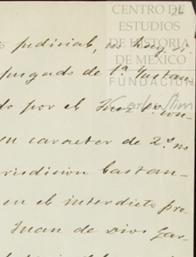 CENTRO DE
ESTUDIOS
DE HISTORIA
DE MÉXICO
FUNDACIÓN
Carlos Slim
judicial, no hay
juzgado de 1ª Instan-
do por el Juez
en caracter de 2º
risdicion bastan-
en el interdicto pre
Juan de Dios Gar-